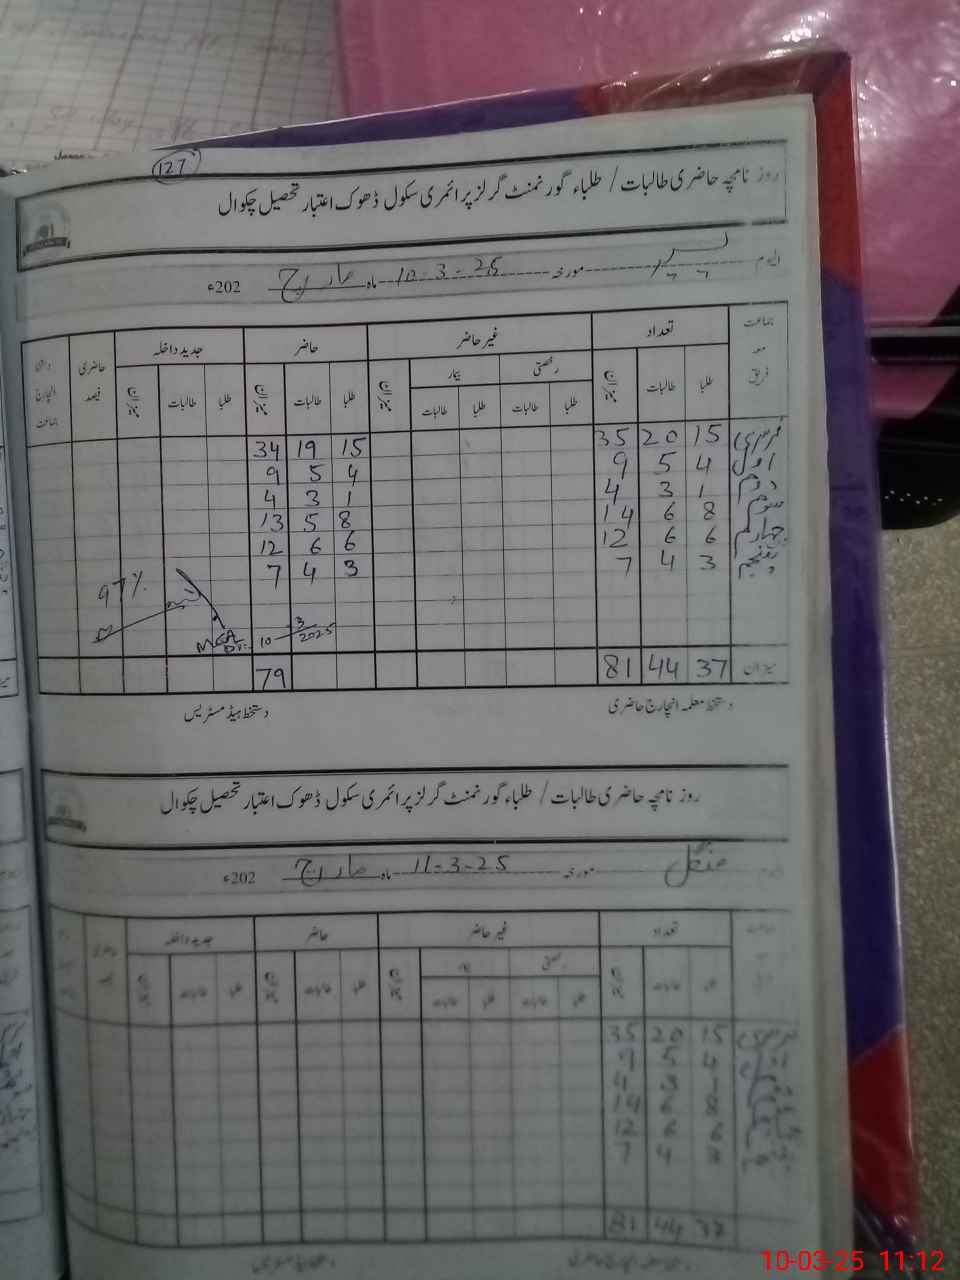 127
روز نامچہ حاضری طالبات / طلباء گورنمنٹ گرلز پرائمری سکول ڈھوک اعتبار تحصیل چکوال
الیوم پیر مورخہ 10-3-25 ماہ مارچ 202ء
جماعت معہ فریق تعداد غیر حاضر حاضر جدید داخلہ حاضری فیصد دستخط انچارج جماعت
رخصتی بیمار
طلبا طالبات میزان طلبا طالبات طلبا طالبات میزان طلبا طالبات میزان طلبا طالبات میزان
نرسری 15 20 35 15 19 34
اول 4 5 9 4 5 9
دوم 1 3 4 1 3 4
سوئم 8 6 14 8 5 13
چہارم 6 6 12 6 6 12
پنجم 3 4 7 3 4 7
97%
MEA
10-3-2025
میزان 37 44 81 79
دستخط معلمہ انچارج حاضری دستخط ہیڈ مسٹریس
روز نامچہ حاضری طالبات / طلباء گورنمنٹ گرلز پرائمری سکول ڈھوک اعتبار تحصیل چکوال
منگل مورخہ 11-3-25 ماہ مارچ 202ء
تعداد غیر حاضر حاضر جدید داخلہ
رخصتی
طلبا طالبات میزان طلبا طالبات طلبا طالبات میزان طلبا طالبات میزان طلبا طالبات میزان
نرسری 15 20 35
4 5 9
1 3 4
8 6 14
6 6 12
3 4 7
37 44 81
10-03-25 11:12